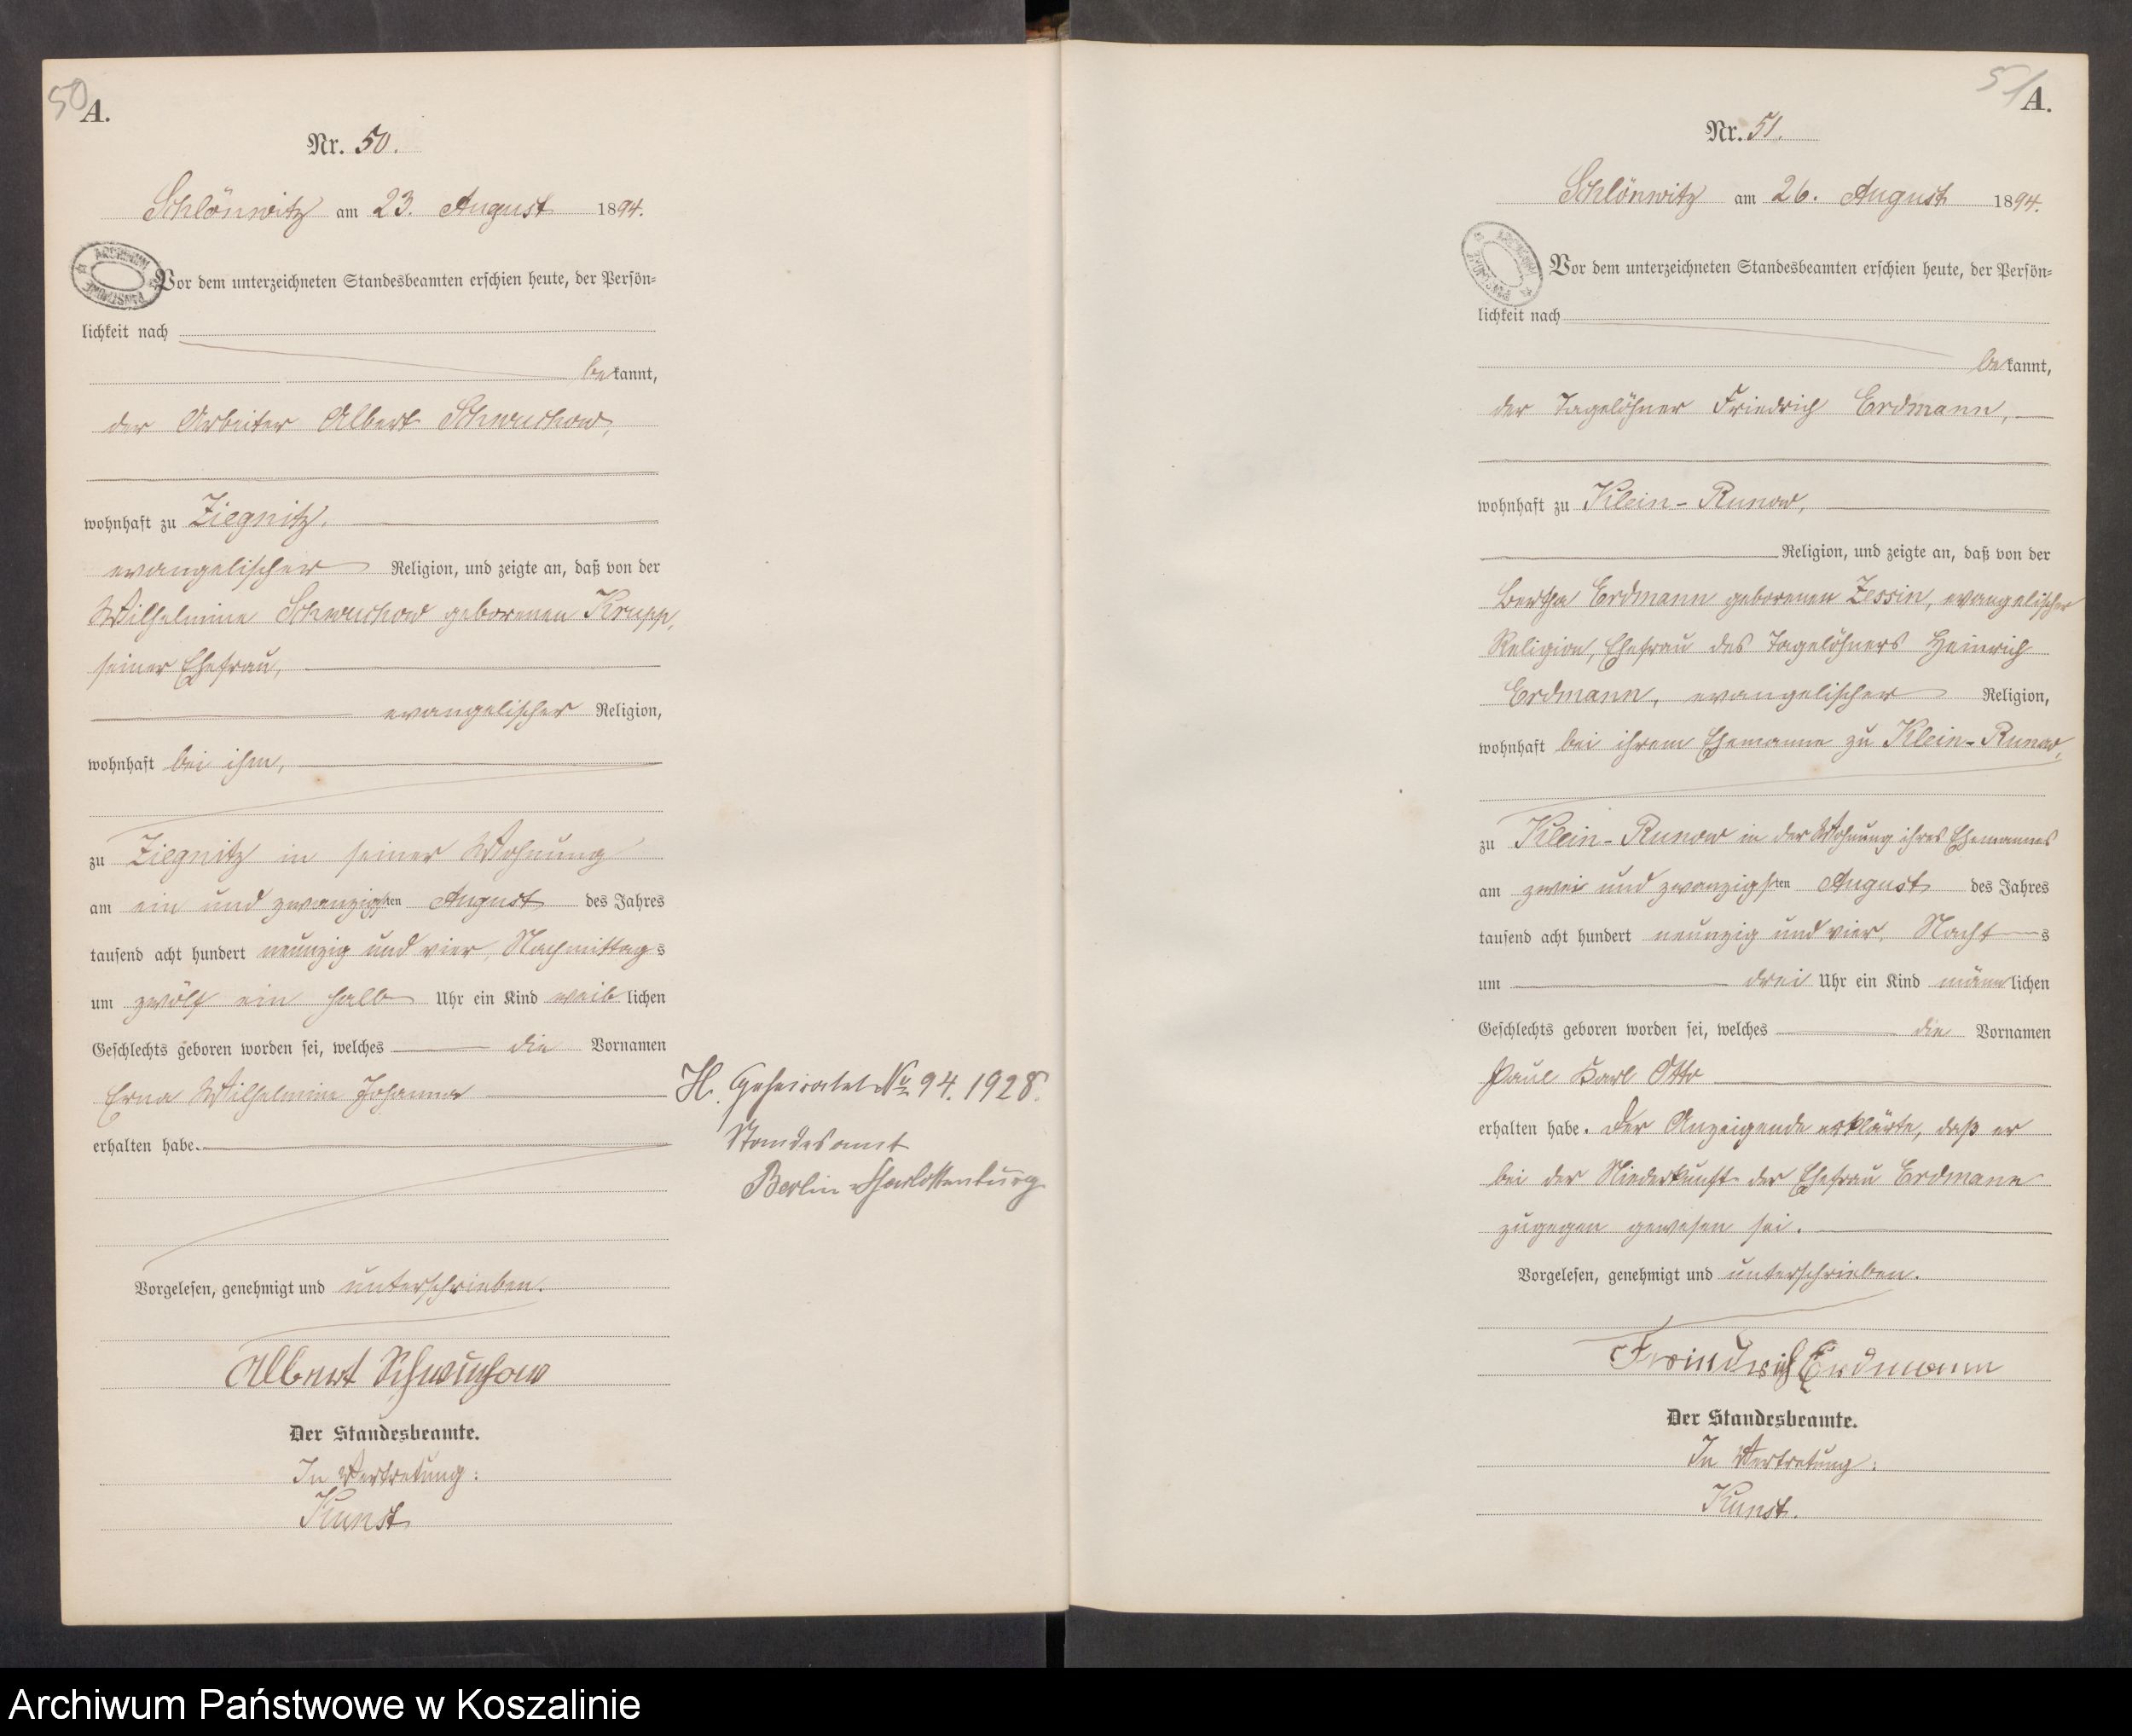 50
A.
Nr. 50.
Schlönwitz am 23. August 1894.
ARCHIWUM PAŃSTWOWE
Vor dem unterzeichneten Standesbeamten erschien heute, der Persön=
lichkeit nach
bekannt,
der Arbeiter Albert Schwuchow,
wohnhaft zu Ziegnitz,
evangelischer Religion, und zeigte an, daß von der
Wilhelmine Schwuchow geborenen Krupp,
seiner Ehefrau,
evangelischer Religion,
wohnhaft bei ihm,
zu Ziegnitz in seiner Wohnung
am ein und zwanzigsten August des Jahres
tausend acht hundert neunzig und vier, Nachmittags
um zwölf ein halb Uhr ein Kind weiblichen
Geschlechts geboren worden sei, welches die Vornamen
Erna Wilhelmine Johanna
erhalten habe.
Vorgelesen, genehmigt und unterschrieben.
Albert Schwuchow
Der Standesbeamte.
In Vertretung:
Kunst
H. Geheiratet No 94. 1928.
Standesamt
Berlin-Charlottenburg
51
A.
Nr. 51.
Schlönwitz am 26. August 1894.
ARCHIWUM PAŃSTWOWE
Vor dem unterzeichneten Standesbeamten erschien heute, der Persön=
lichkeit nach
bekannt,
der Tagelöhner Friedrich Erdmann,
wohnhaft zu Klein-Runow,
Religion, und zeigte an, daß von der
Bertha Erdmann geborenen Zessin, evangelischer
Religion, Ehefrau des Tagelöhners Heinrich
Erdmann, evangelischer Religion,
wohnhaft bei ihrem Ehemanne zu Klein-Runow,
zu Klein-Runow in der Wohnung ihres Ehemannes
am zwei und zwanzigsten August des Jahres
tausend acht hundert neunzig und vier, Nachts
um drei Uhr ein Kind männlichen
Geschlechts geboren worden sei, welches die Vornamen
Paul Karl Otto
erhalten habe. Der Anzeigende erklärte, daß er
bei der Niederkunft der Ehefrau Erdmann
zugegen gewesen sei.
Vorgelesen, genehmigt und unterschrieben.
Friedrich Erdmann
Der Standesbeamte.
In Vertretung:
Kunst.
Archiwum Państwowe w Koszalinie